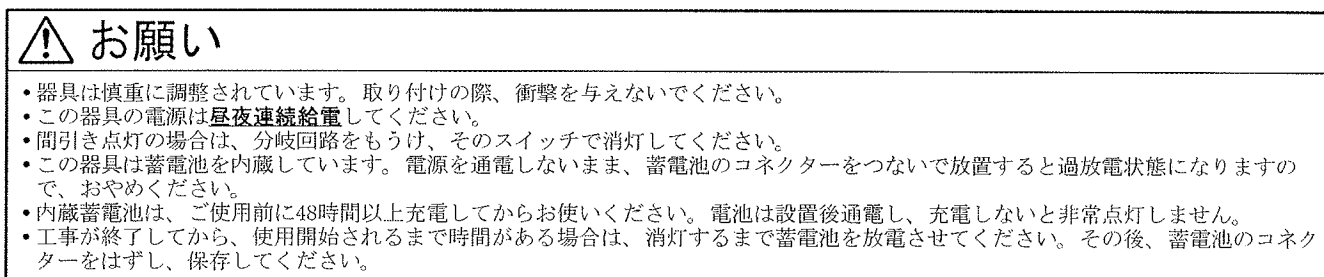 お願い
•器具は慎重に調整されています。取り付けの際、衝撃を与えないでください。
•この器具の電源は昼夜連続給電してください。
•間引き点灯の場合は、分岐回路をもうけ、そのスイッチで消灯してください。
•この器具は蓄電池を内蔵しています。電源を通電しないまま、蓄電池のコネクターをつないで放置すると過放電状態になりますの
で、おやめください。
•内蔵蓄電池は、ご使用前に48時間以上充電してからお使いください。電池は設置後通電し、充電しないと非常点灯しません。
•工事が終了してから、使用開始されるまで時間がある場合は、消灯するまで蓄電池を放電させてください。その後、蓄電池のコネク
ターをはずし、保存してください。